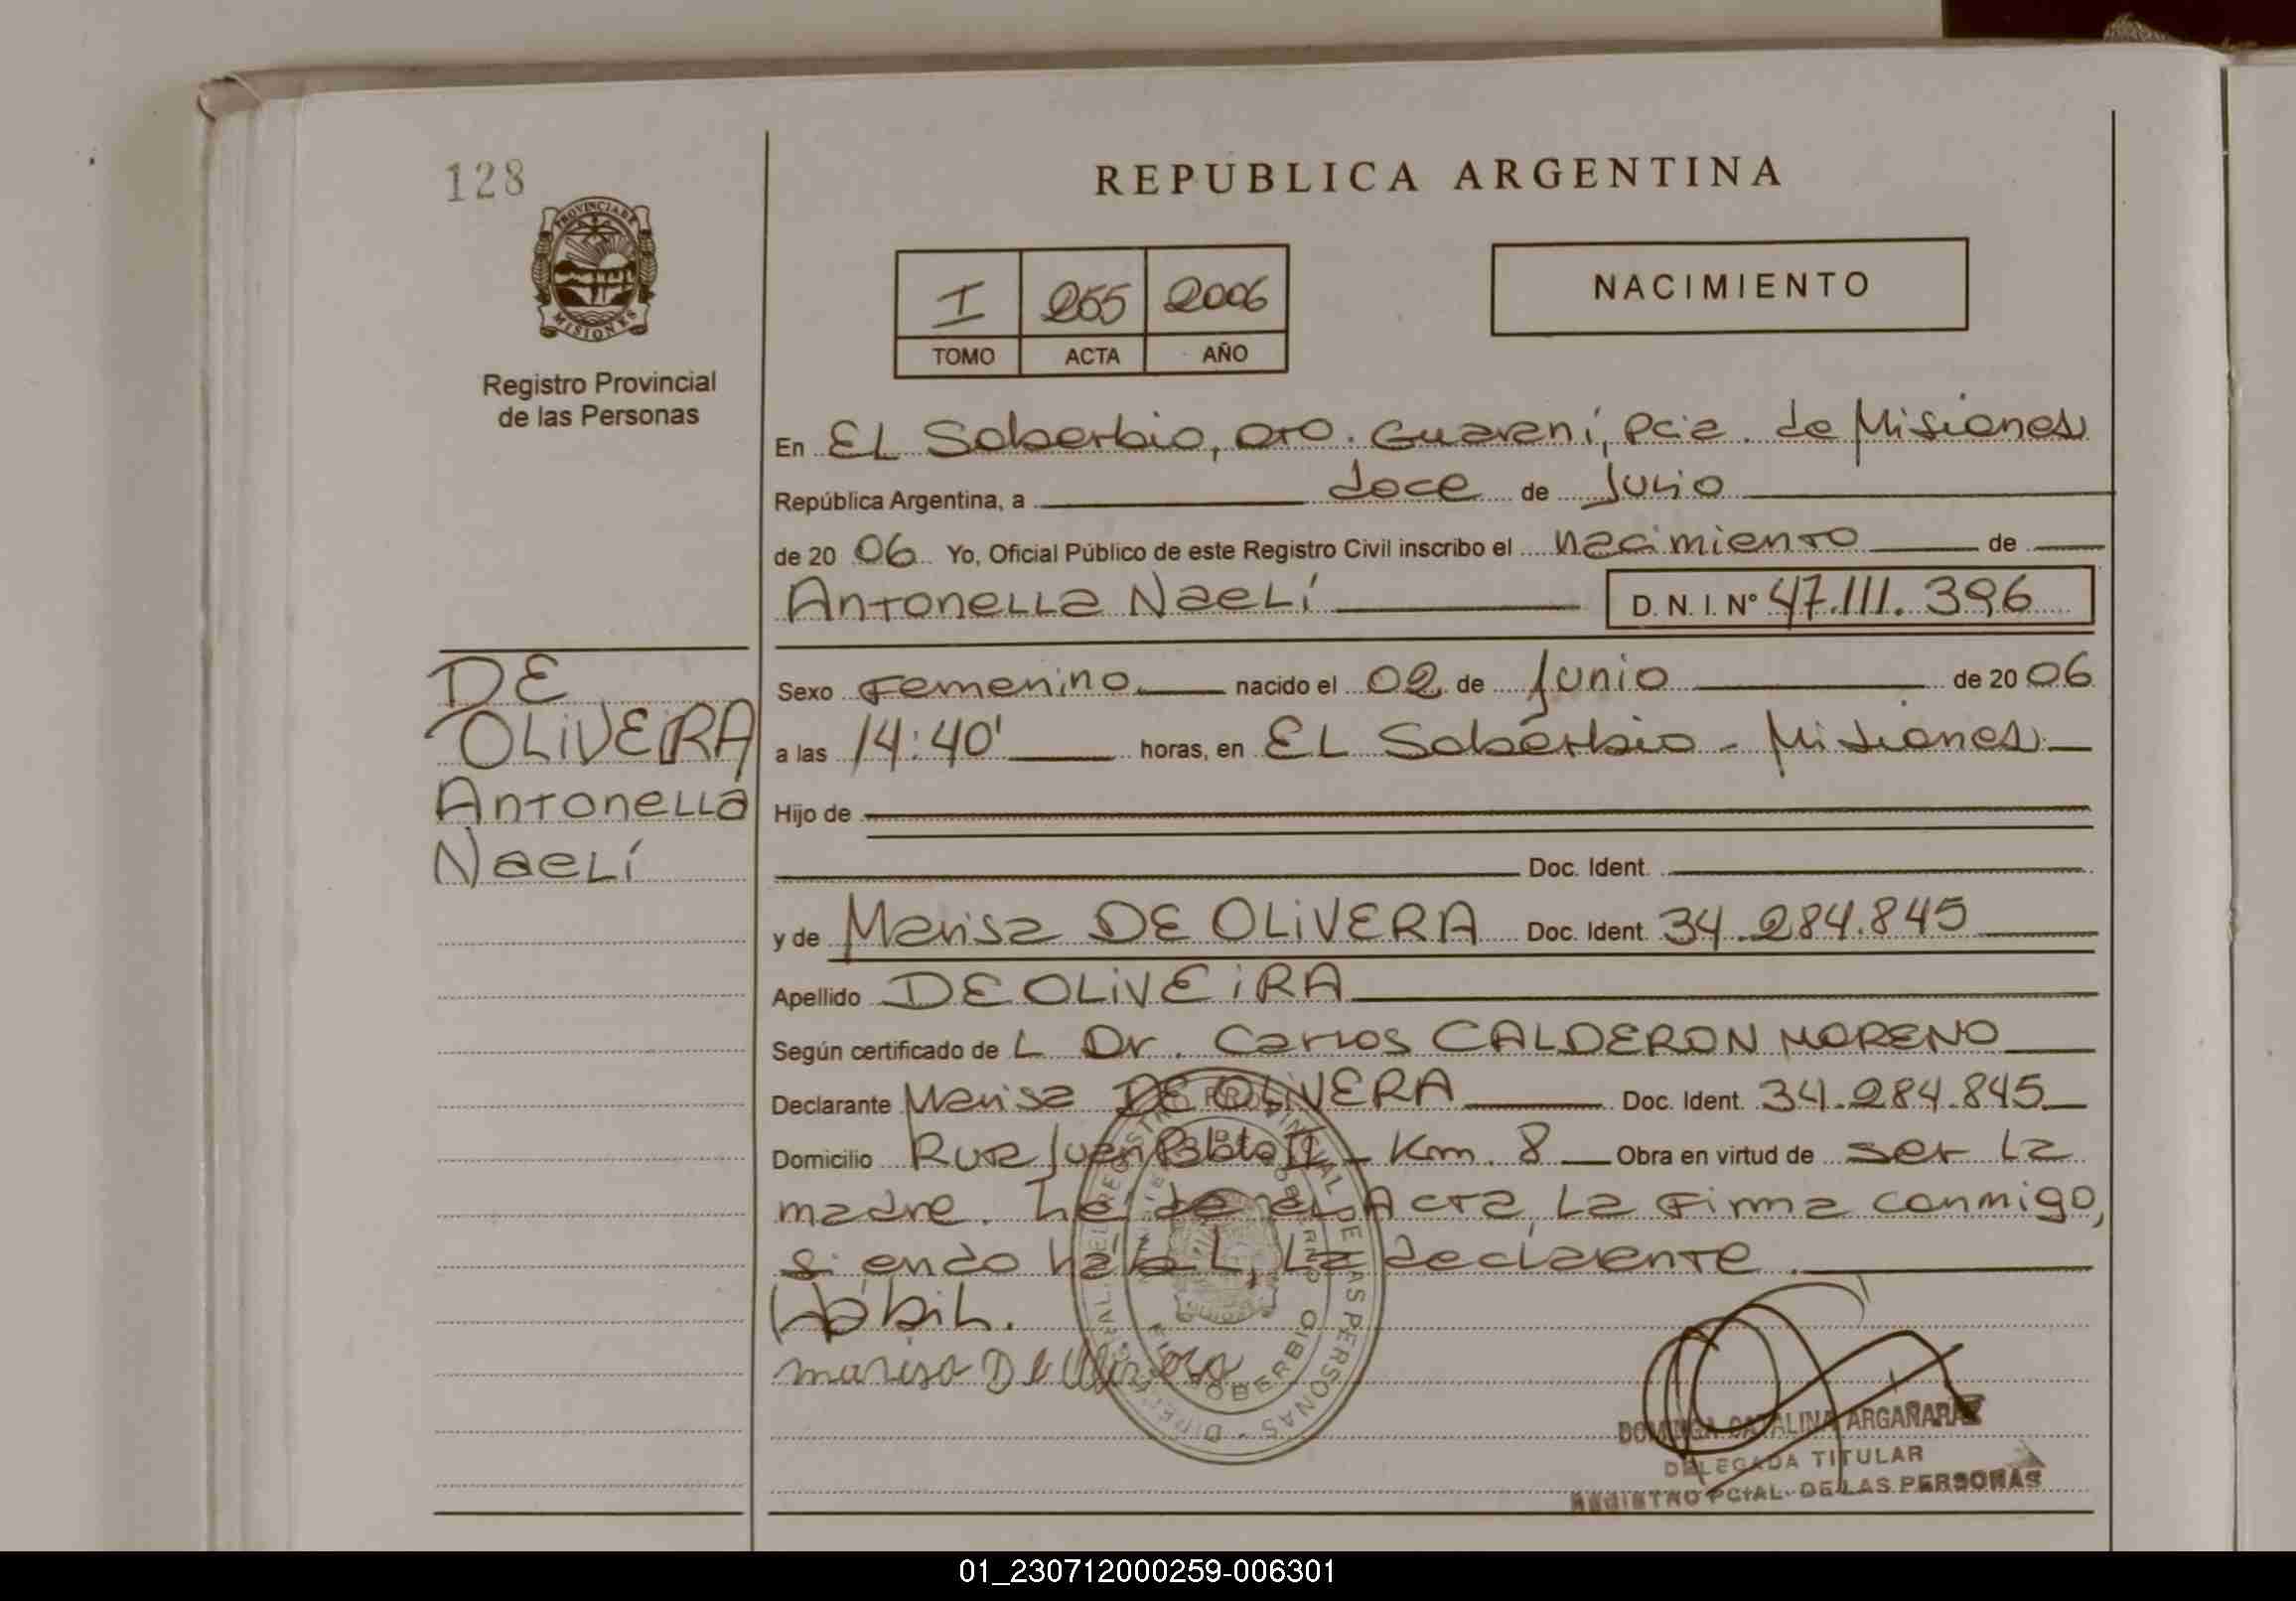 128
REPUBLICA ARGENTINA
PROVINCIA DE
MISIONES
Registro Provincial
de las Personas
I 255 2006
TOMO ACTA AÑO
NACIMIENTO
En EL Soberbio, Dto. Guaraní, Pcia. de Misiones
República Argentina, a doce de Julio
de 20 06 Yo, Oficial Público de este Registro Civil inscribo el nacimiento de
Antonella Naelí D. N. I. Nº 47.111.396
DE
OLiVEiRA
Antonella
Naelí
Sexo Femenino nacido el 02 de Junio de 20 06
a las 14:40' horas, en EL Soberbio - Misiones
Hijo de
Doc. Ident.
y de Marisa DE OLiVERA Doc. Ident. 34.284.845
Apellido DE OLiVEiRA
Según certificado de L Dr. Carlos CALDERON MORENO
Declarante Marisa DE OLiVERA Doc. Ident. 34.284.845
Domicilio Ruta Juan Pablo II - Km. 8 Obra en virtud de ser la
madre. Leída el Acta, la firma conmigo,
siendo hábil, la declarante
Hábil.
marisa De Olivera
REGISTRO PROVINCIAL DE LAS PERSONAS
EL SOBERBIO
DOMINGA CATALINA ARGAÑARAZ
DELEGADA TITULAR
REGISTRO PCIAL. DE LAS PERSONAS
01_230712000259-006301